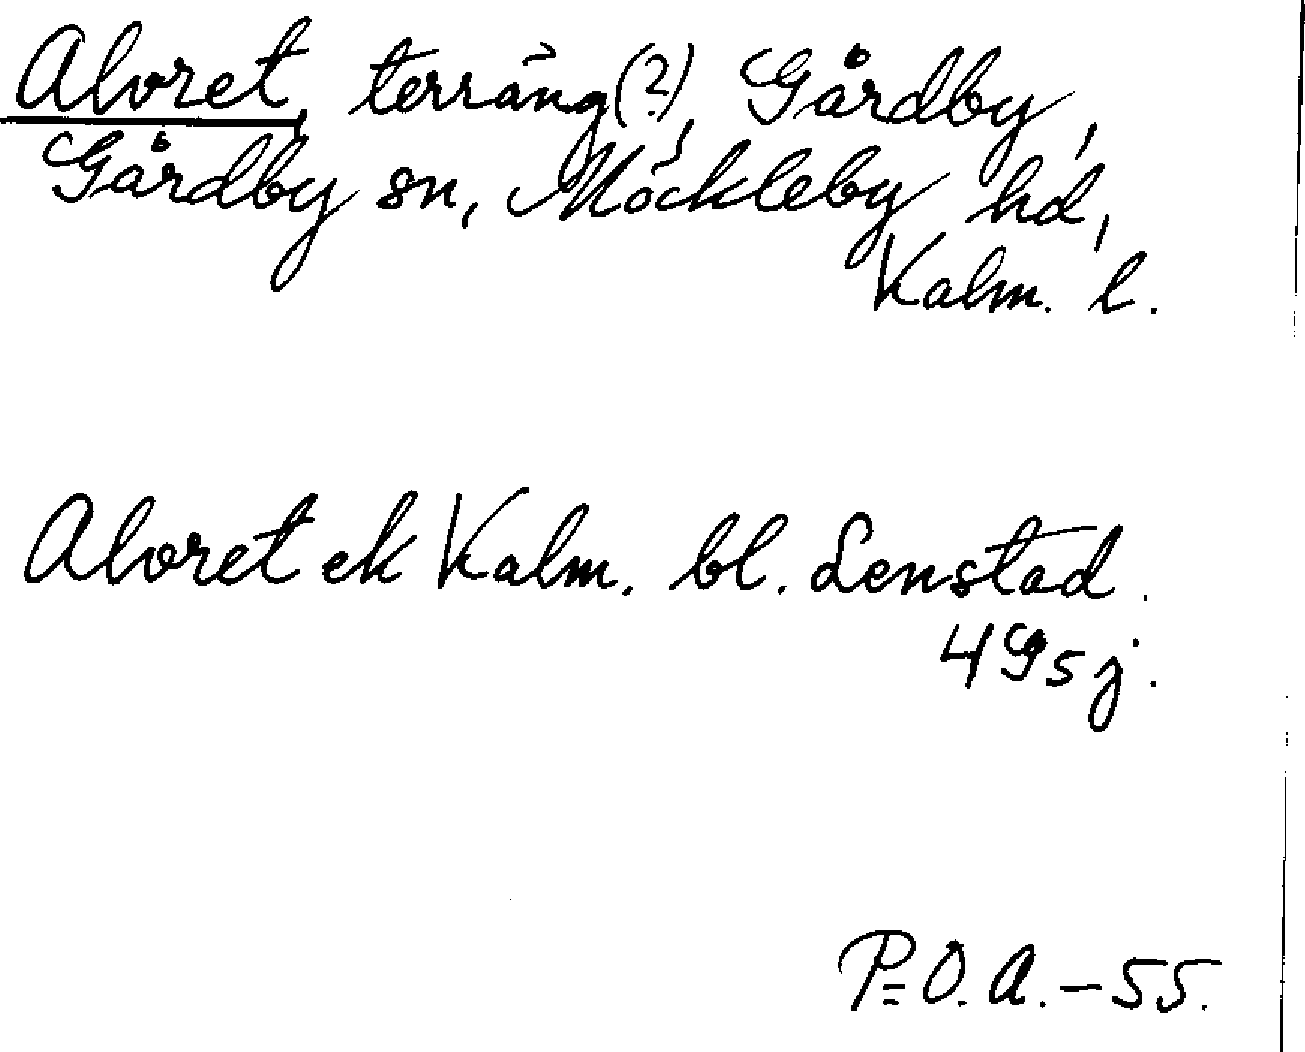 Alvret, terräng(?), Gårdby,
Gårdby sn, Möckleby hd,
Kalm. l.
Alvret ek Kalm. bl. Lenstad.
4 9 5 j.
P=O. A. - 55.